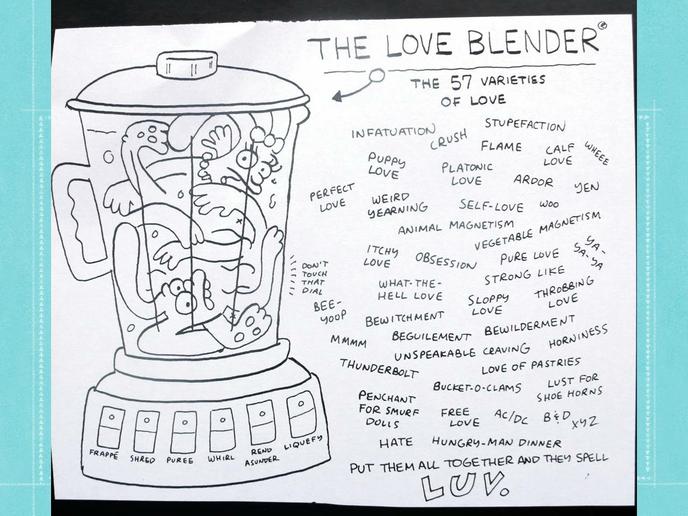 THE LOVE BLENDER®
THE 57 VARIETIES
OF LOVE
INFATUATION CRUSH STUPEFACTION
PUPPY LOVE PLATONIC LOVE FLAME CALF LOVE WHEEE
PERFECT LOVE WEIRD YEARNING SELF-LOVE ARDOR WOO YEN
ANIMAL MAGNETISM VEGETABLE MAGNETISM
ITCHY LOVE OBSESSION PURE LOVE YA-YA-YA
WHAT-THE-HELL LOVE STRONG LIKE
DON'T
TOUCH
THAT
DIAL
BEE-YOOP BEWITCHMENT SLOPPY LOVE THROBBING LOVE
MMMM BEGUILEMENT BEWILDERMENT
UNSPEAKABLE CRAVING HORNINESS
THUNDERBOLT LOVE OF PASTRIES
PENCHANT FOR SMURF DOLLS BUCKET-O-CLAMS LUST FOR SHOE HORNS
FREE LOVE AC/DC B&D XYZ
HATE HUNGRY-MAN DINNER
PUT THEM ALL TOGETHER AND THEY SPELL
LUV.
FRAPPÉ SHRED PUREE WHIRL REND ASUNDER LIQUEFY